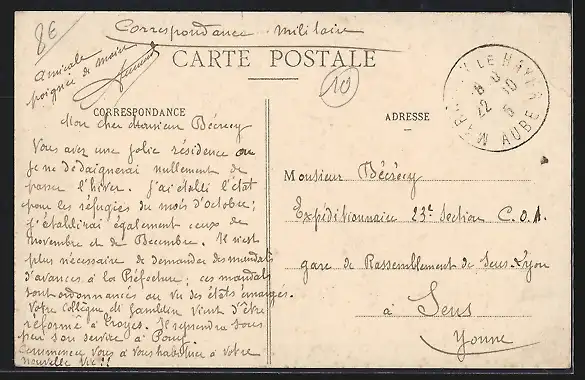 8€
Correspondance militaire
Amicale
poignée de main
CARTE POSTALE
10
MERGEY LE HAYER
AUBE
CORRESPONDANCE
ADRESSE
Mon cher Monsieur Bécrécy
Vous avez une jolie résidence ou
je ne dedaignerai nullement de
passer l'hiver. J'ai établi l'état
pour les réfugiés du mois d'Octobre;
j'établirai également ceux de
Novembre et de Decembre. Il n'est
plus nécessaire de demander des mandats
d'avances à la Préfecture; ces mandats
sont ordonnancés au vu des états émargés.
Votre Collègue de Gamblin vient d'être
réformé à Troyes. Il reprendra sous
peu son service à Pouy.
Commencez vous à vous habituer à votre
nouvelle vie!!
Monsieur Bécrécy
Expéditionnaire 23e Section C.O.A.
gare de Rassemblement de Sens-Lyon
à Sens
Yonne